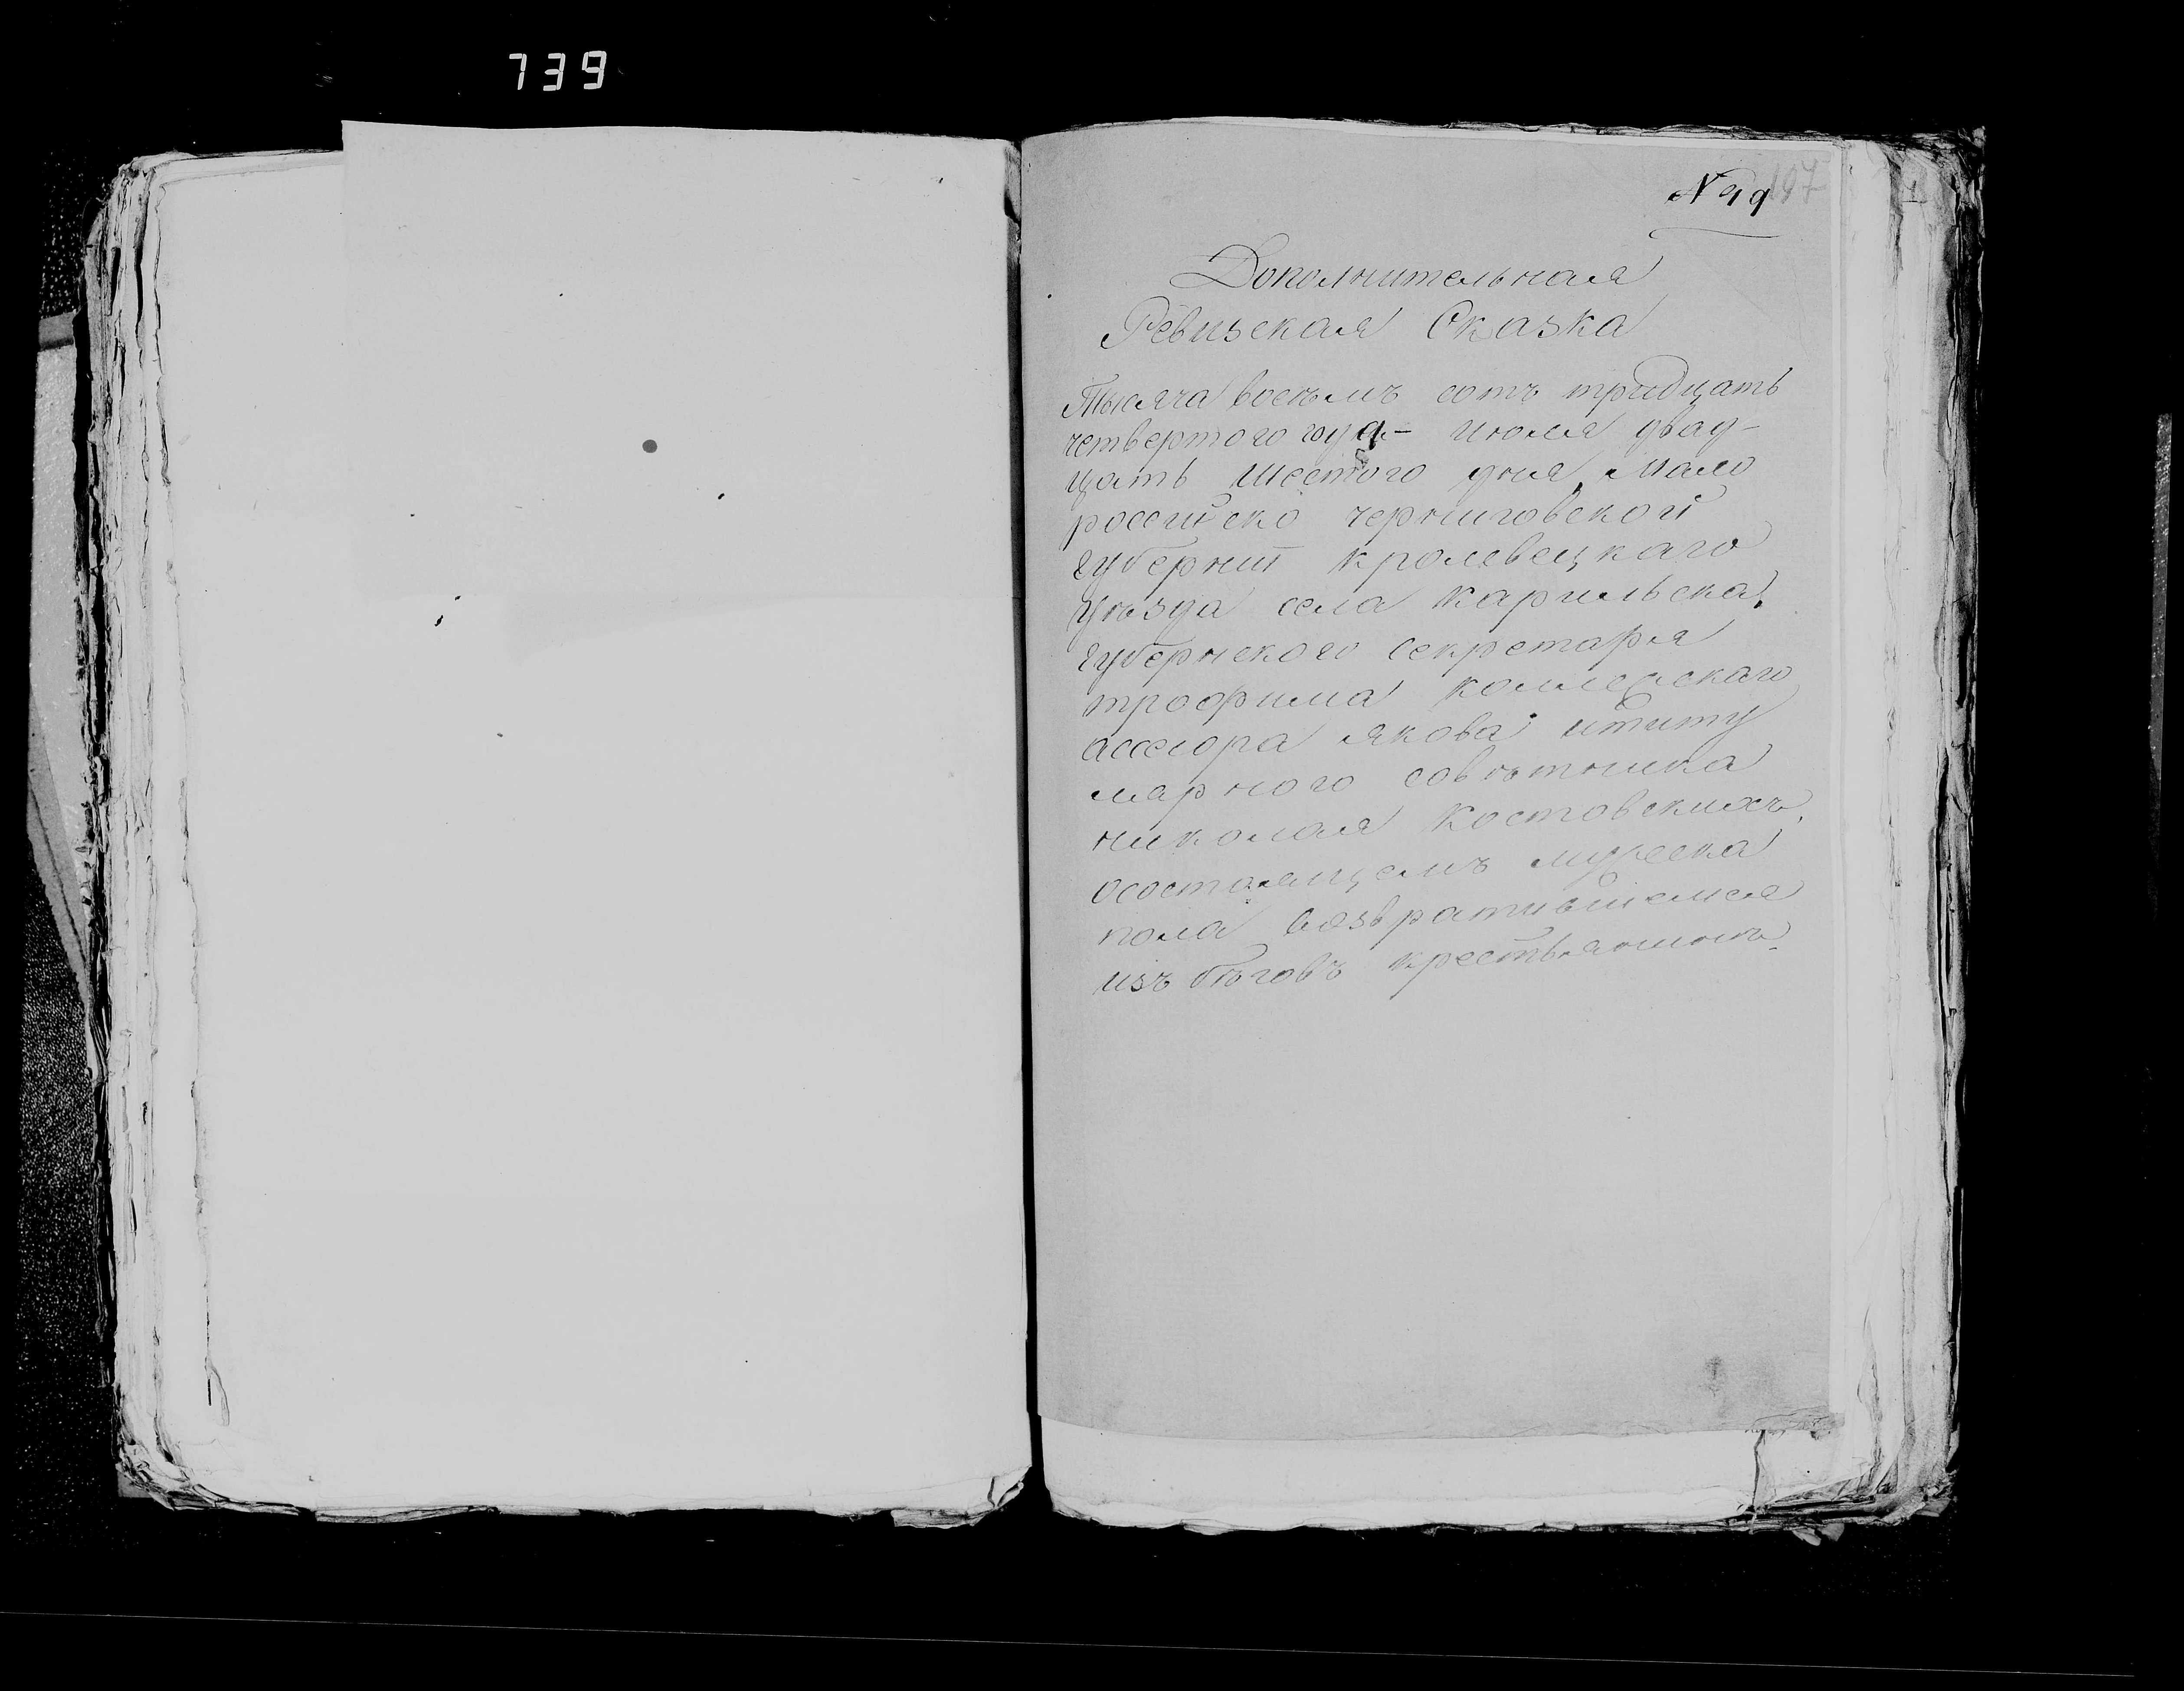 739
197
N 99
Дополнительная
Ревизская Сказка
Тысяча восемъ сотъ тридцать
четвертого года - июля двад-
цать шестого дня, мало
российско черниговской
губернии кролевецкаго
уѣзда села карильска,
губернского секретаря
трофима коллежскаго
ассесора якова ититу
лярного совѣтника
николая костовскихъ,
осостоящемъ мужеска
пола возвратившемся
изъ бѣговъ крестьянинѣ.